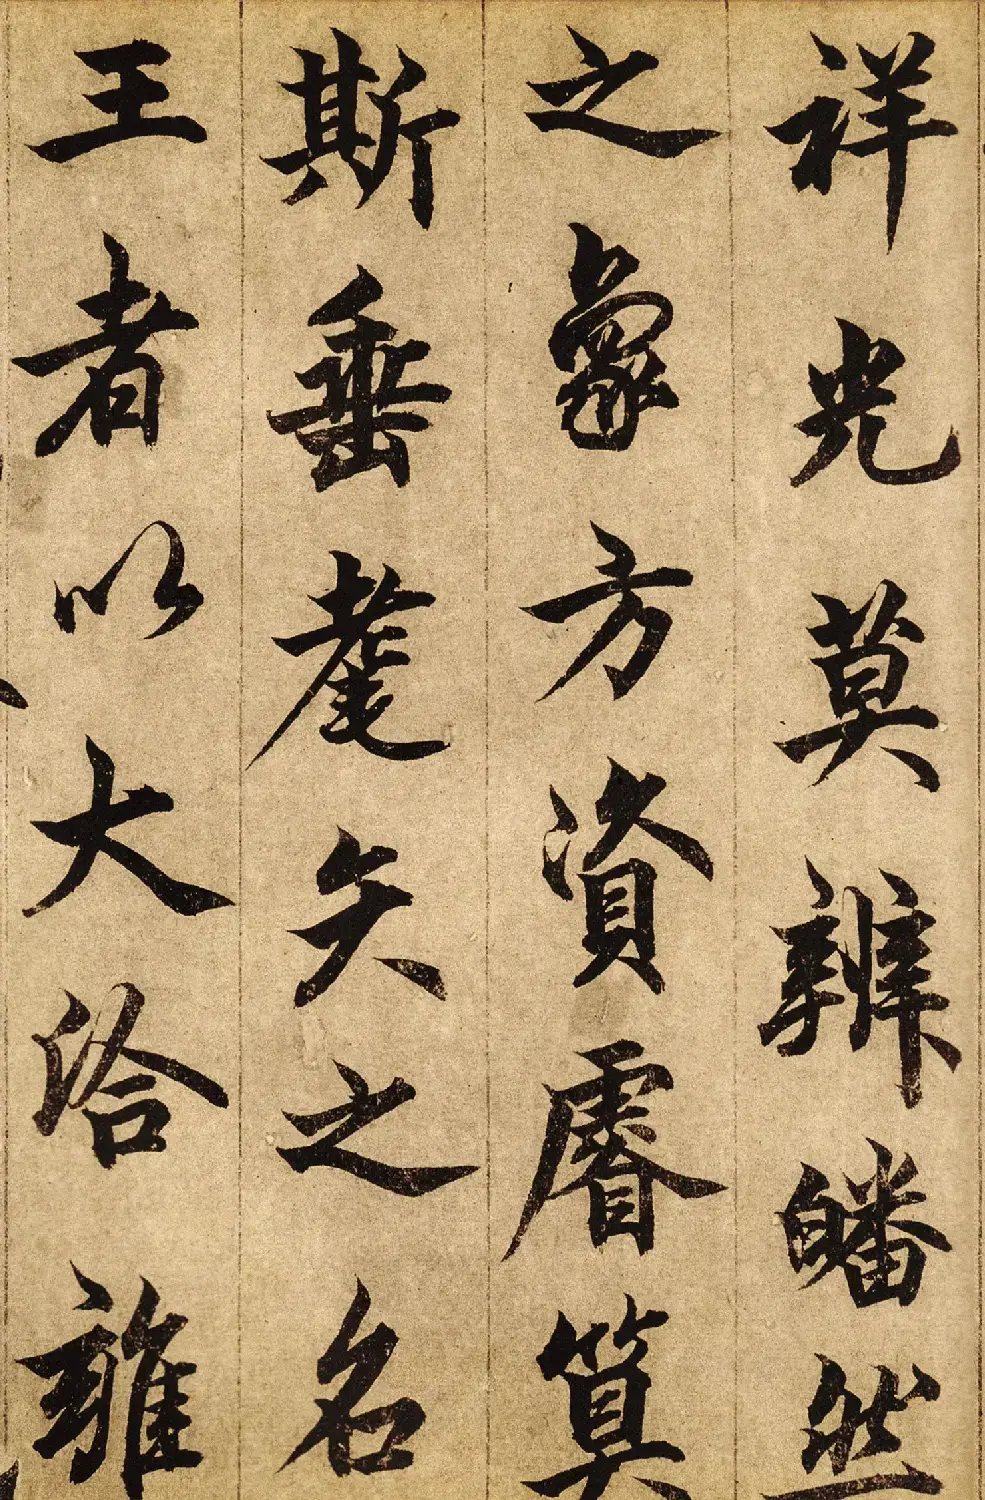 祥光莫辨皤然
之象方資睿算
斯垂耄矣之名
王者以大洽雍